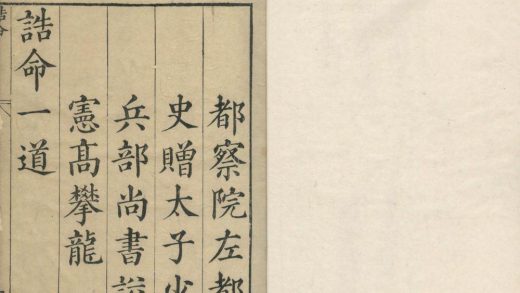 都察院左都
史贈太子少
兵部尚書
憲高攀龍
誥命一道